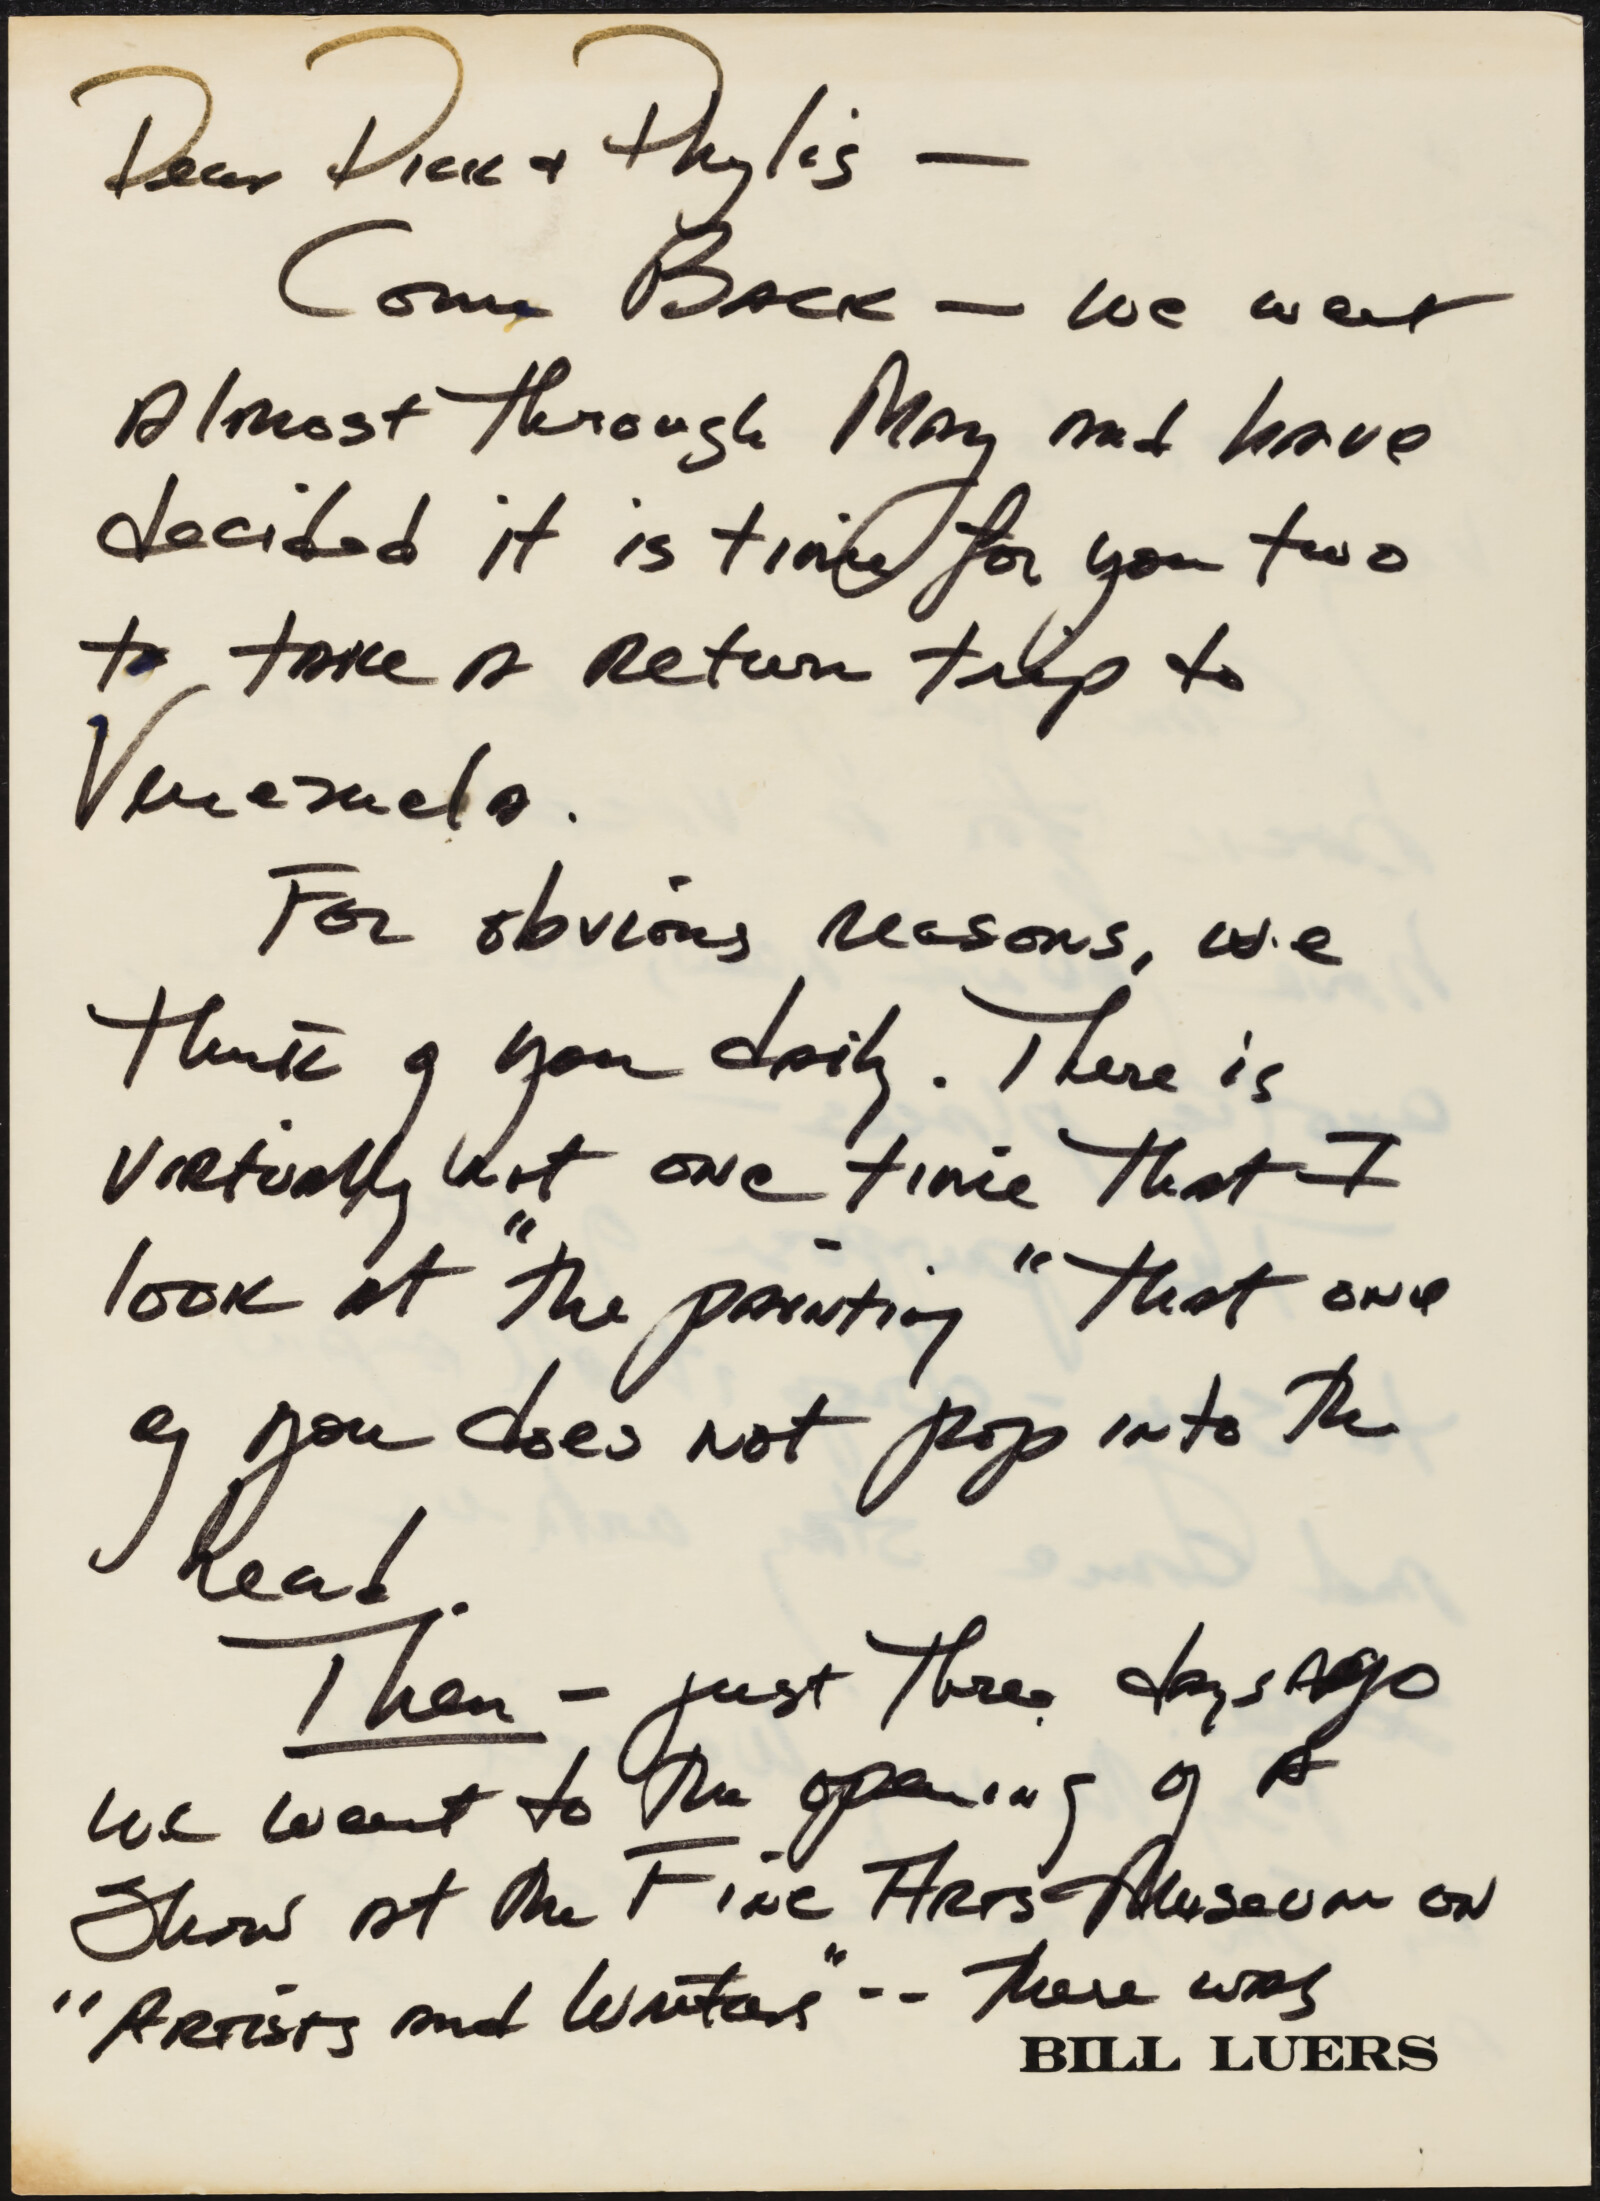 Dear Dick + Phylis —
Come Back — we went
almost through May and have
decided it is time for you two
to take a return trip to
Venezuela.
For obvious reasons, we
think of you daily. There is
virtually not one time that I
look at "the painting" that one
of you does not pop into the
head.
Then – just three days ago
we went to the opening of a
show at the Fine Arts Museum on
"Artists and Writers" -- there was
BILL LUERS